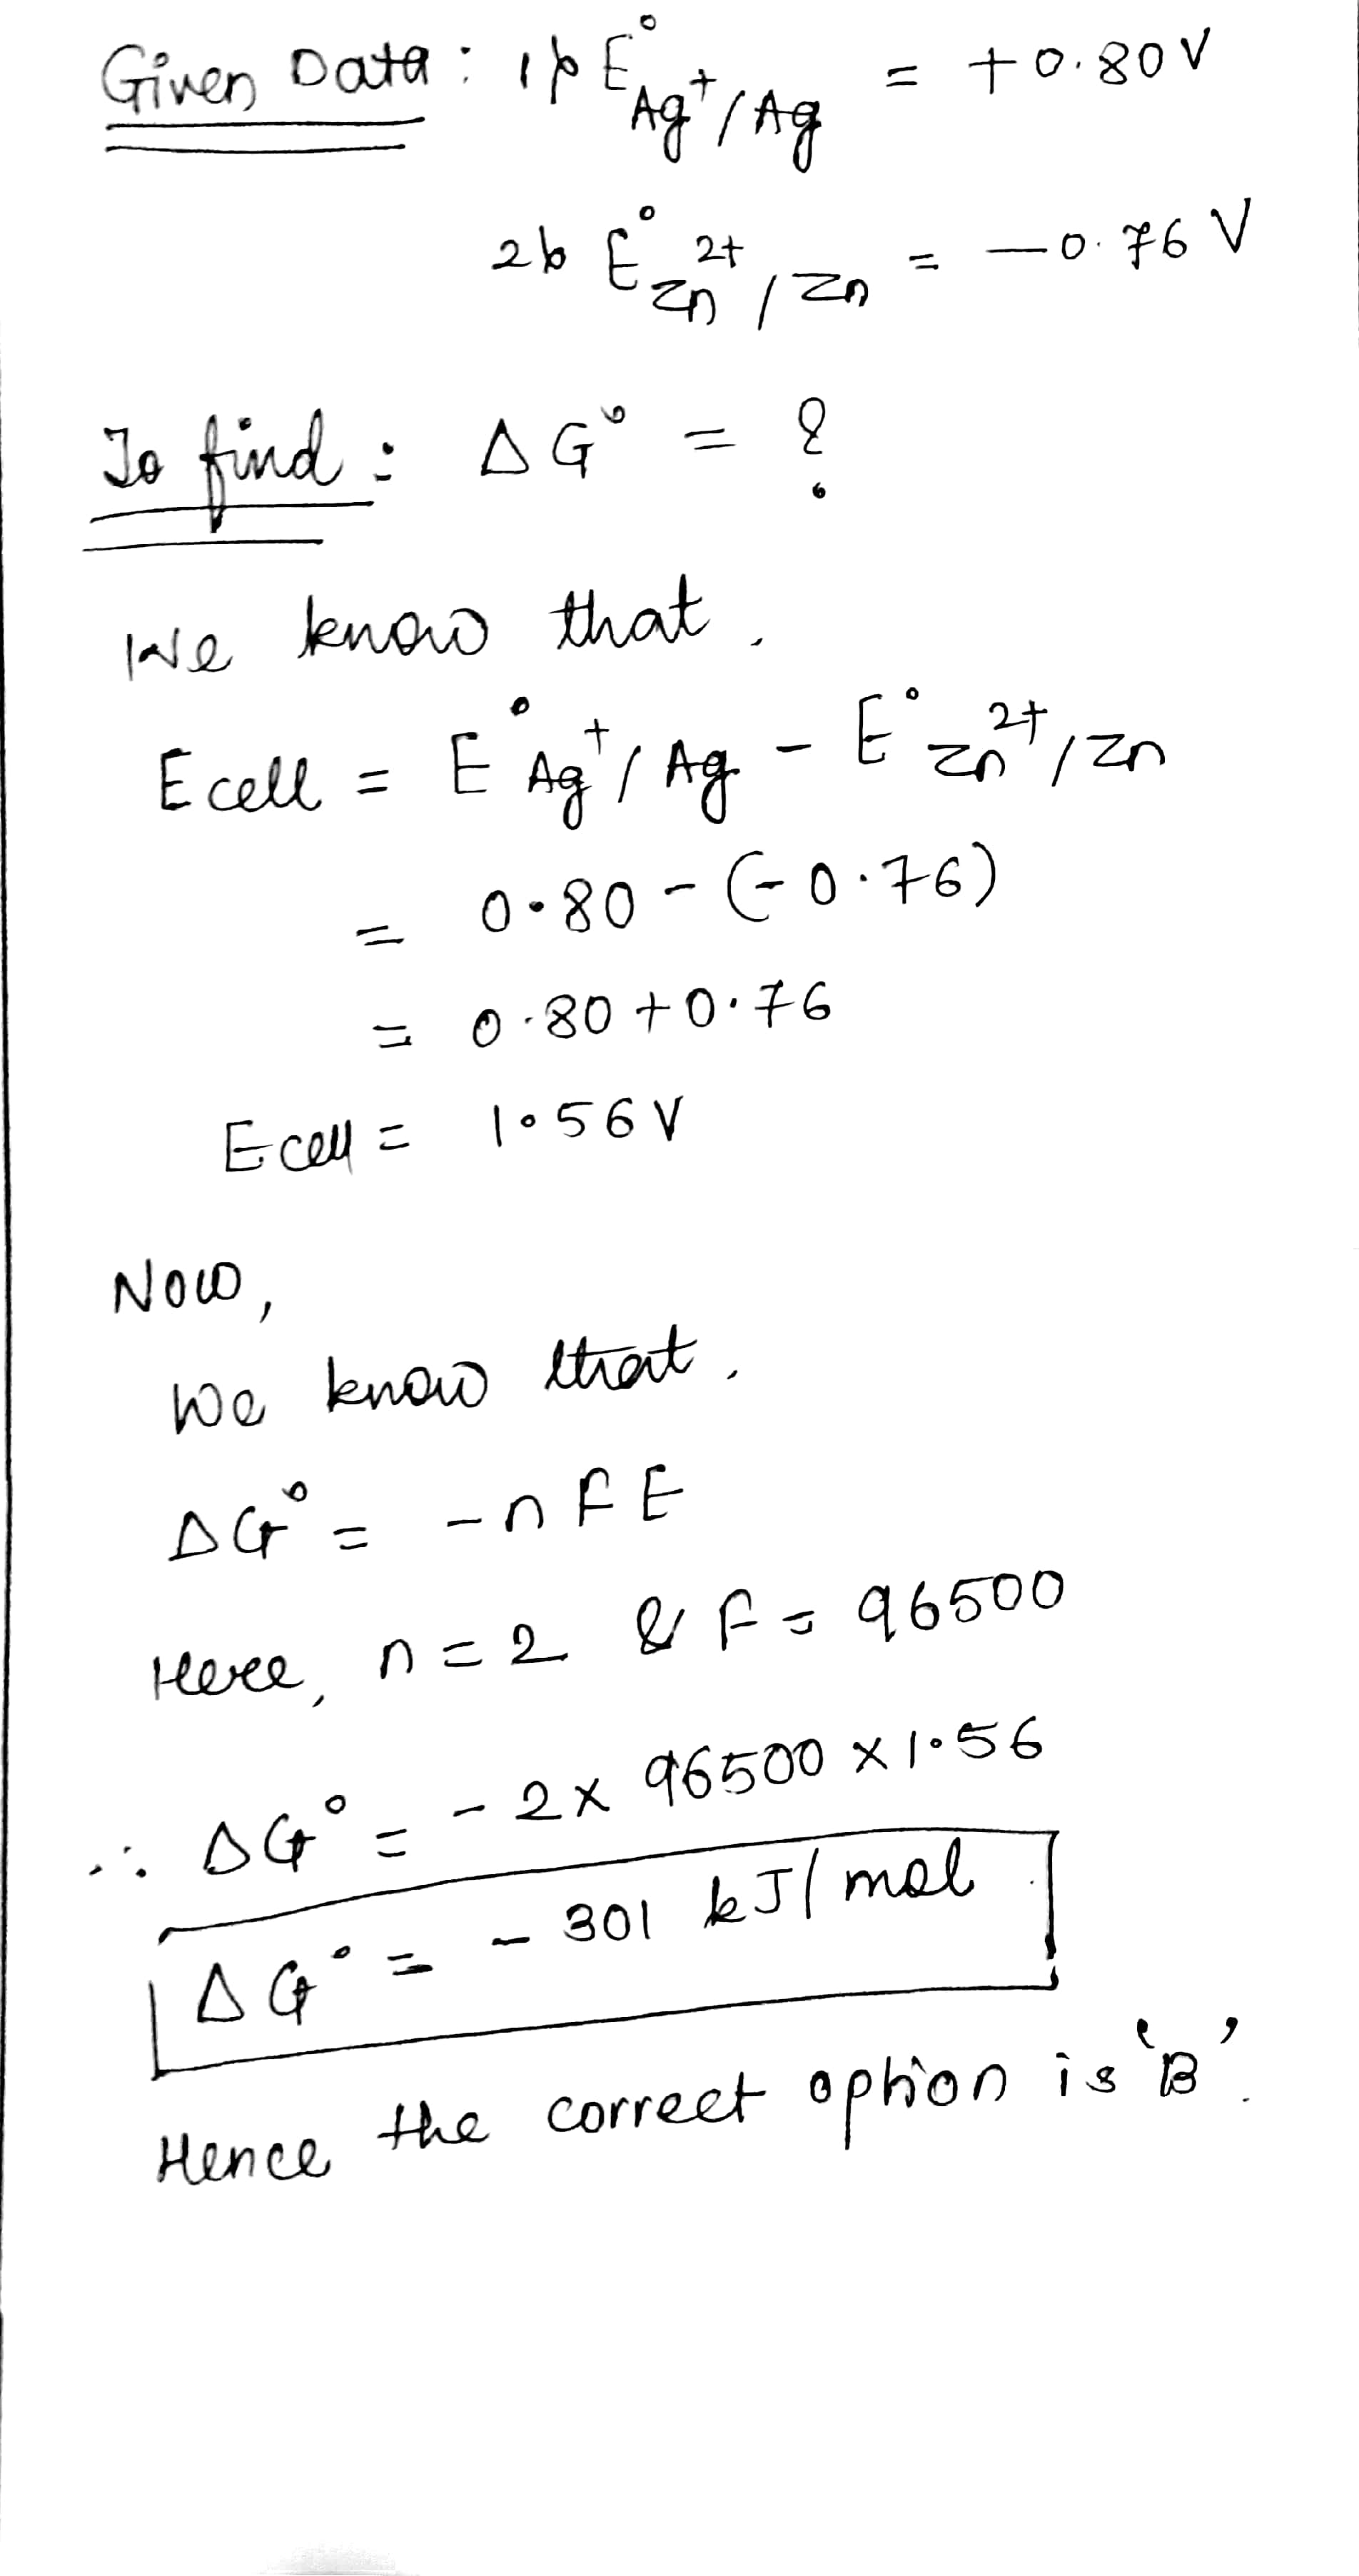 Given Data : 1) E°Ag⁺/Ag = +0.80V
2) E°Zn²⁺/Zn = -0.76 V
To find : ΔG° = ?
We know that,
Ecell = E°Ag⁺/Ag - E°Zn²⁺/Zn
= 0.80 - (-0.76)
= 0.80 + 0.76
Ecell = 1.56V
Now,
We know that,
ΔG° = -nFE
Here, n=2 & F = 96500
∴ ΔG° = -2 x 96500 x 1.56
ΔG° = -301 kJ/mol
Hence the correct option is 'B'.